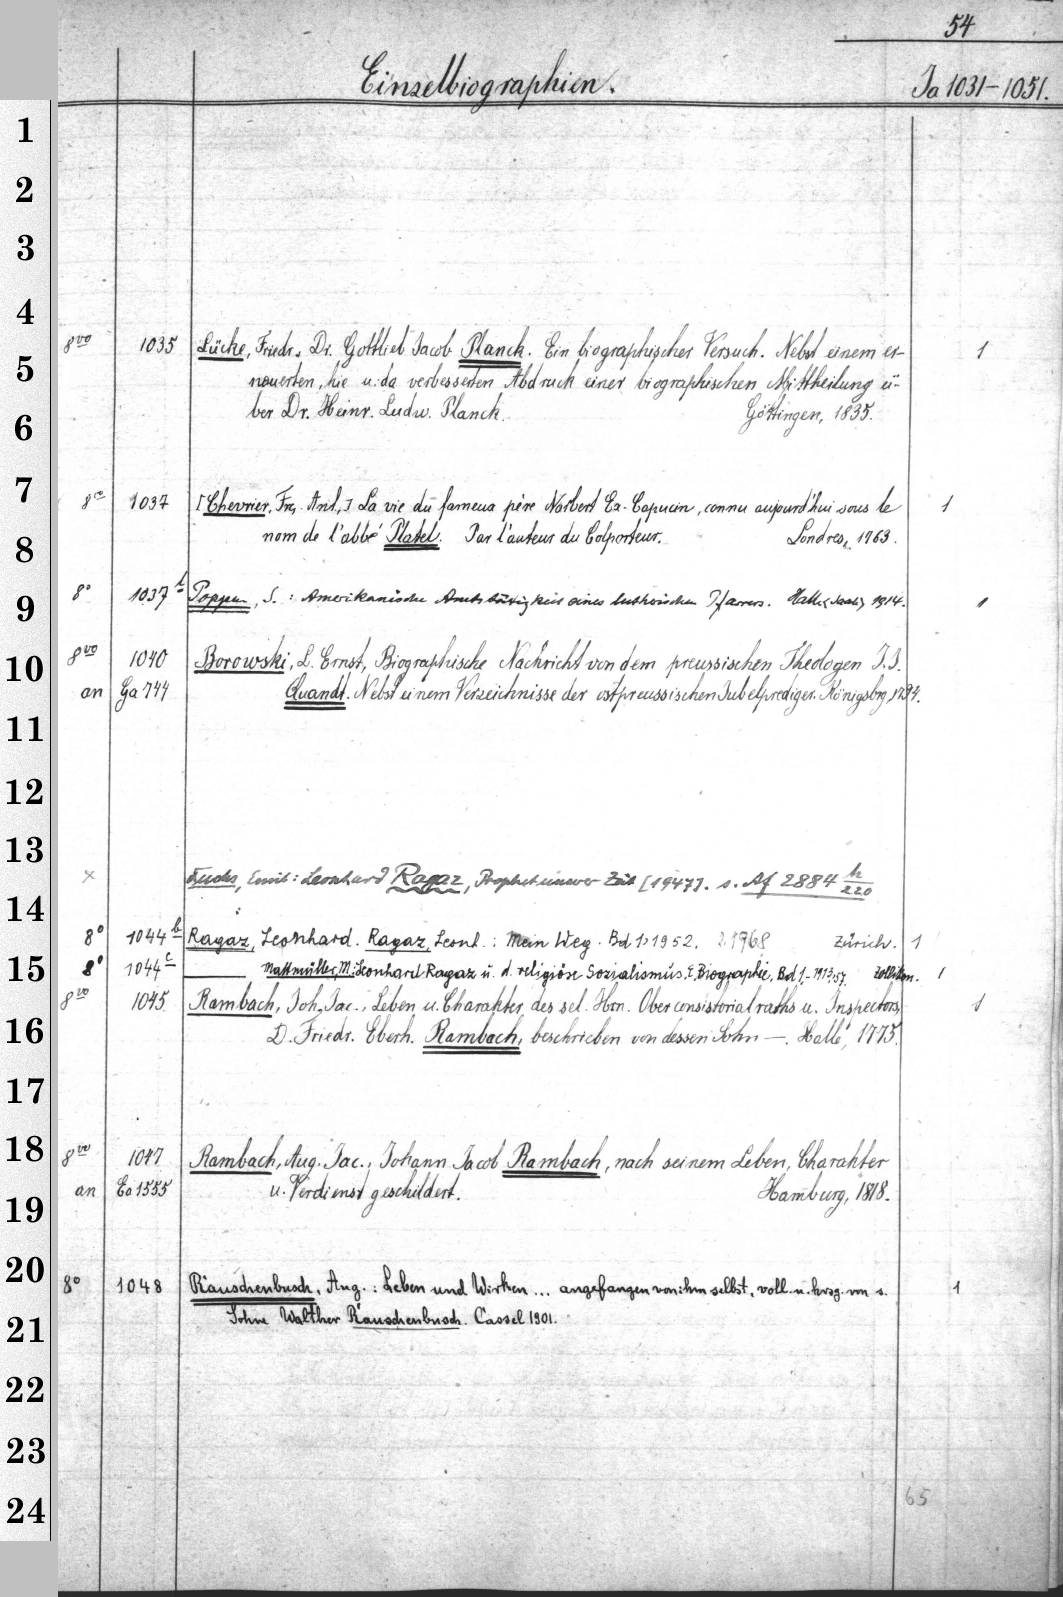 54
Einzelbiographien.
Ja 1031–1051.
1
2
3
4
8vo 1035 Lücke, Friedr., Dr. Gottlieb Jacob Planck. Ein biographischer Versuch. Nebst einem er- 1
5
neuerten, hie u. da verbesserten Abdruck einer biographischen Mittheilung ü-
6
ber Dr. Heinr. Ludw. Planck. Göttingen, 1835.
7
1037 [Chevrier, Frç. Ant.,] La vie du fameux père Norbert Ex-Capucin, connu aujourd'hui sous le 1
8
nom de l'abbé Platel. Par l'auteur du Colporteur. Londres, 1763.
9
8° 1037 b Poppen, S.: Amerikanische Amtstätigkeit eines lutherischen Pfarrers. Halle (Saale) 1914. 1
10
8vo 1040 Borowski, L. Ernst, Biographische Nachricht von dem preussischen Theologen J. J.
an Ga 744 Quandt. Nebst einem Verzeichnisse der ostpreussischen Jubelprediger. Königsbrg, 1794.
11
12
13
x Fuchs, Emil: Leonhard Ragaz, Prophet unserer Zeit [1947]. s. Af 2884 h/220
14
8° 1044 b Ragaz, Leonhard. Ragaz, Leonh.: Mein Weg. Bd 1> 1952. 2. 1968 Zürich. 1
15
8° 1044 c ——— Mattmüller, M.: Leonhard Ragaz u. d. religiöse Sozialismus. E. Biographie, Bd 1.- 1913. 57. Zollikon. 1
8vo 1045 Rambach, Joh. Jac., Leben u. Charakter des sel. Hrn. Oberconsistorialraths u. Inspectors 1
16
D. Friedr. Eberh. Rambach, beschrieben von dessen Sohn —. Halle, 1775.
17
18
8vo 1047 Rambach, Aug. Jac., Johann Jacob Rambach, nach seinem Leben, Charakter
an Ea 1555 u. Verdienst geschildert. Hamburg, 1818.
19
20
8° 1048 Rauschenbusch, Aug.: Leben und Wirken ... angefangen von ihm selbst, voll. u. hrsg. von s. 1
21
Sohne Walther Rauschenbusch. Cassel 1901.
22
23
24
65